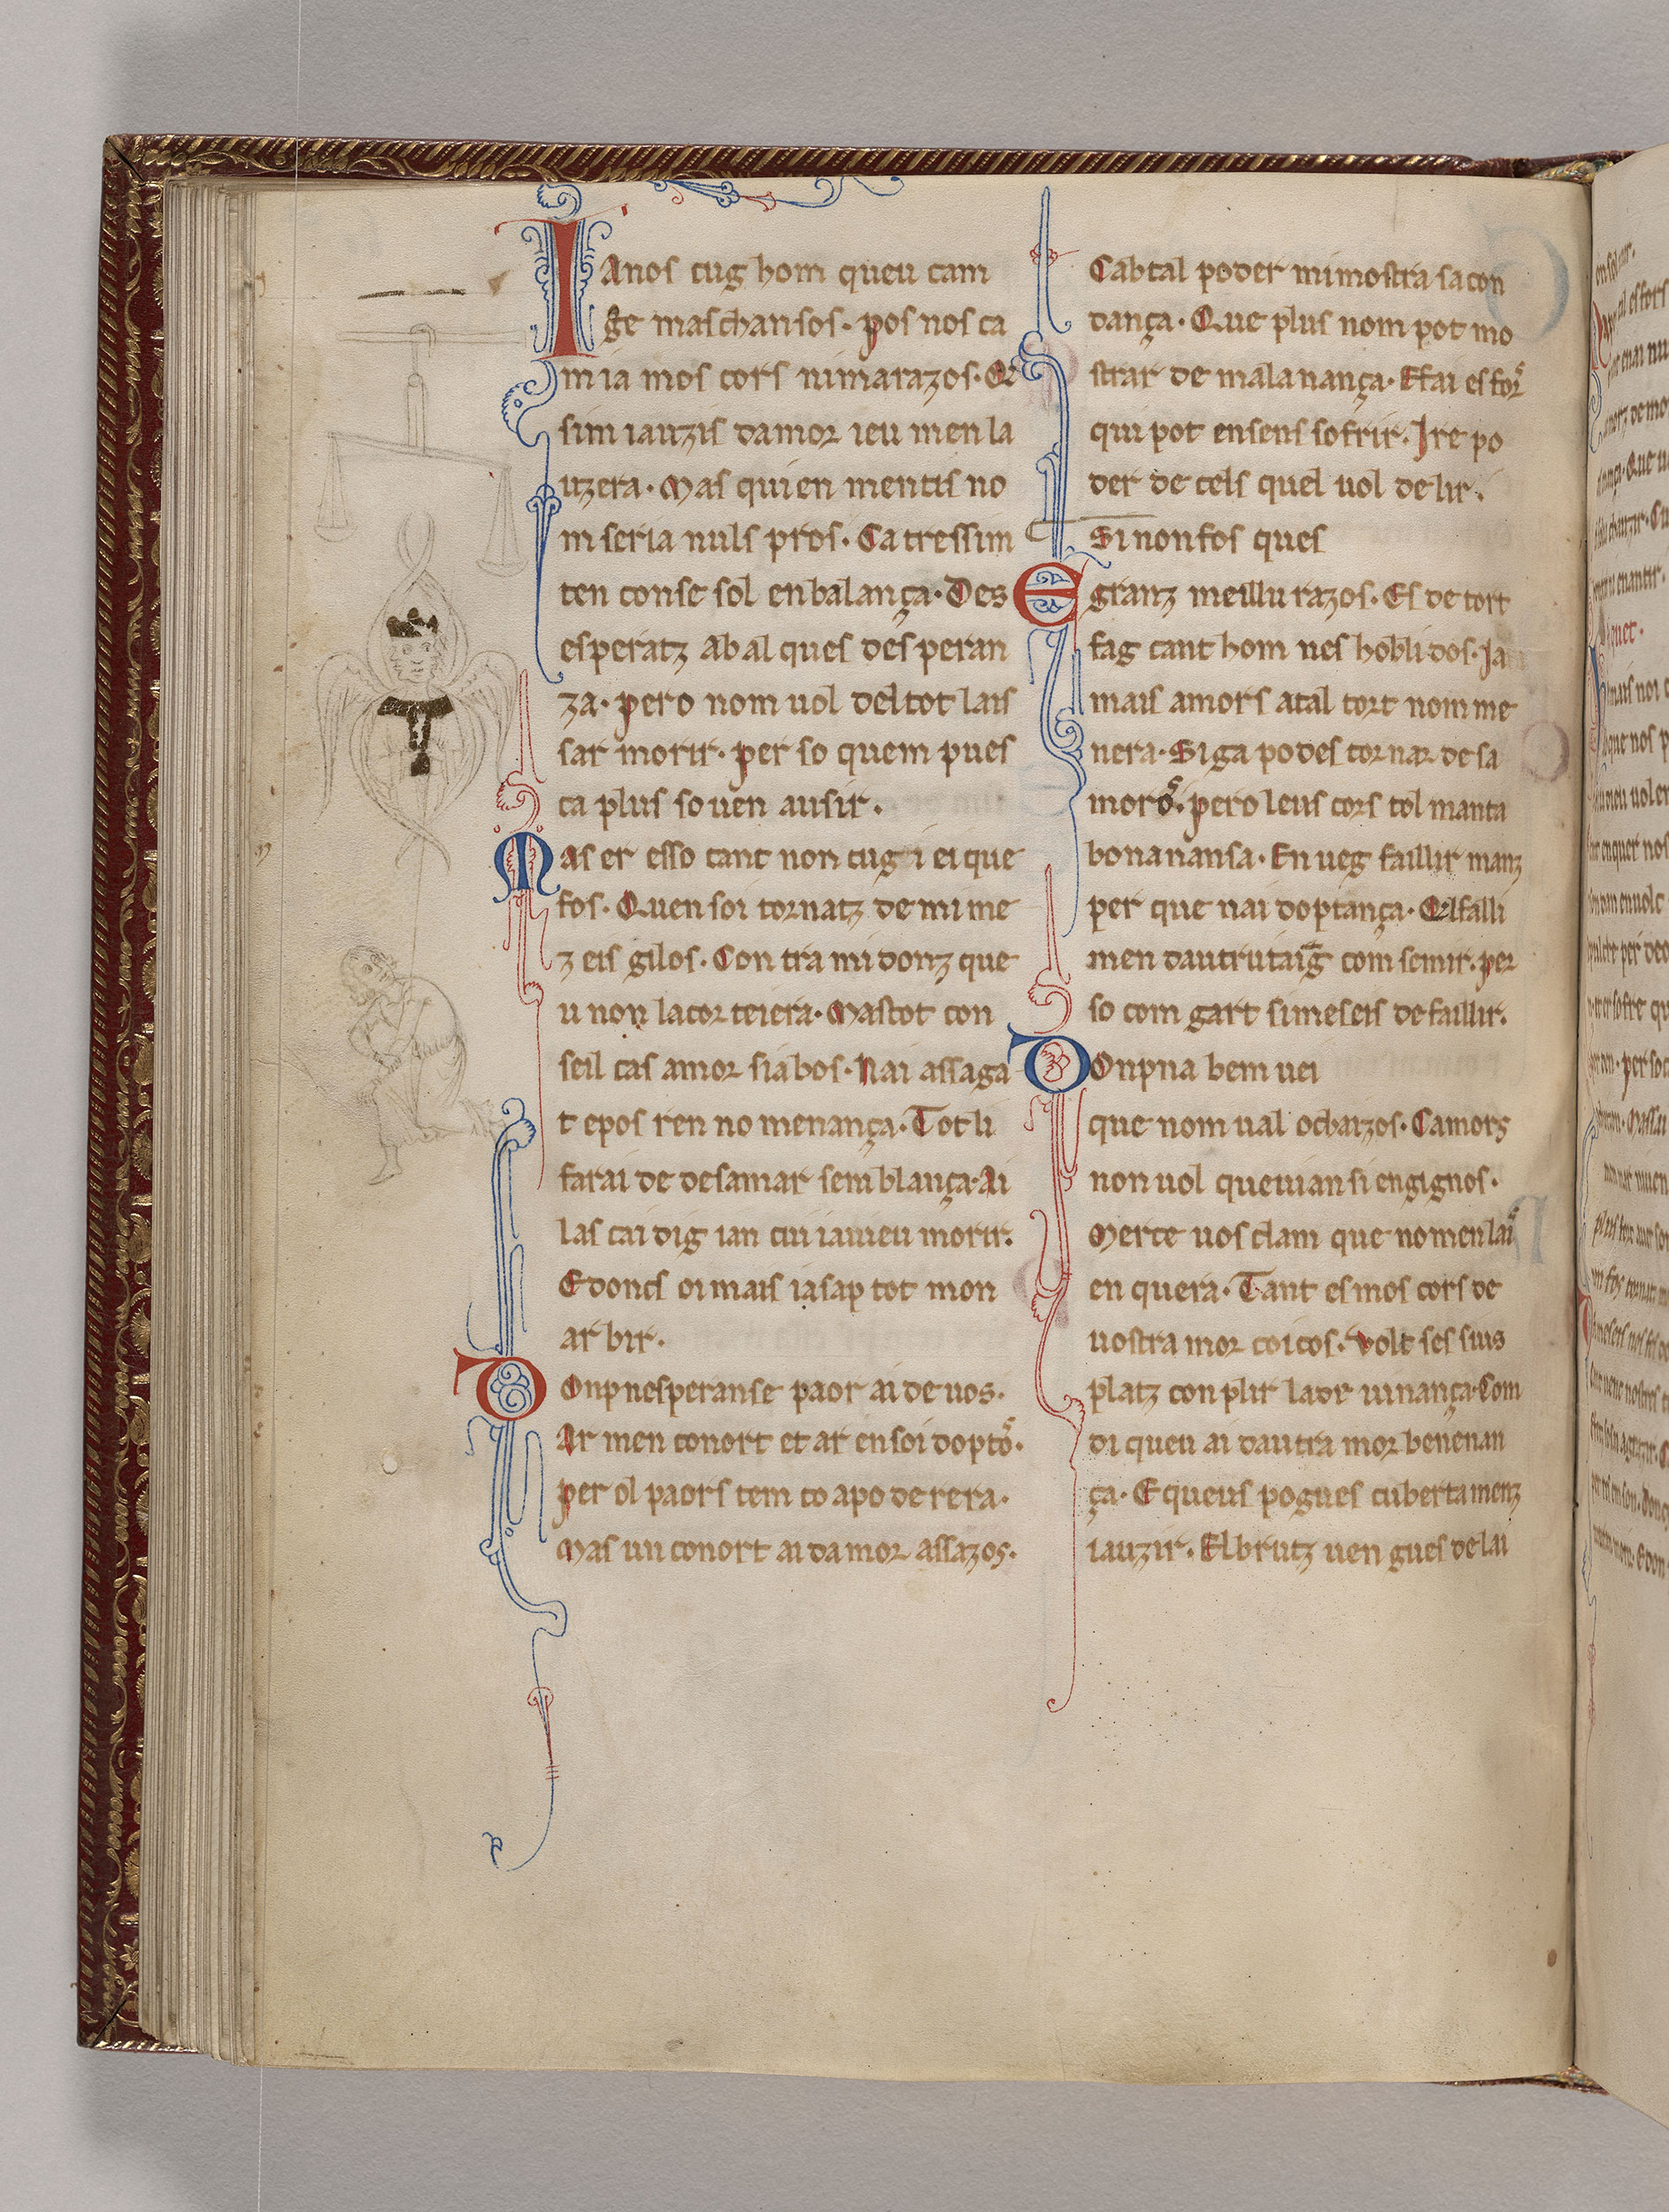 Ianos cug hom queu cam
ge mas chansos. pos nos ca
mia mos cors nimarazos. Er
sim iauzis damor ieu men la
uzera. Mas quien mentis no
m seria nuls pros. Catressim
ten conse sol en balança. Des
esperatz ab al ques desperan
za. pero nom uol deltot lais
sar morir. per so quem pues
ca plus souen ausir.
Mas er esso tant non cug i ei que
fos. Quen soi tornatz de mi me
zeis gilos. Contra midonz que
u non lacorteiera. Mastot con
seil cas amor sia bos. Nai assaga
t epos ren no menança. Tot li
farai de desamar semblança. Ai
las cai dig ian cui iauieu morir.
E doncs oimais iasap tot mon
arbir.
Donpnesperanse paor ai de uos.
Ar men conort et ar en soi doptos.
per ol paors tem co apoderera.
Mas un conort ai damor assazos.
Cab tal poder mi mostra sa con
dança. Que plus nom pot mo
strar de mala nança. E fai esfors
qui pot ensens sofrir. Ire po
der de cels quel uol delir.
Si non fos ques
E granz meillurazos. Es de tort
fag cant hom nes hoblidos. Ja
mais amors atal tort nomme
nera. Siga podes tornar de sa
moros. pero leus cors tol manta
bona nansa. En ueg faillir manz
per que nai doptança. Qelfalli
men dautrui taing com se mir. per
so com gart simeseis de faillir.
Donpna bem uei
que nom ual ochaizos. Camors
non uol queuian si engignos.
Merce uos clam que nomen lais
enquera. Tant es mos cors de
uostramor coitos. Volt ses sius
platz conplir lade uinança. Com
di queu ai dautra mor benenan
ça. E queus pogues cubertamenz
iauzir. El brutz uengues de lai